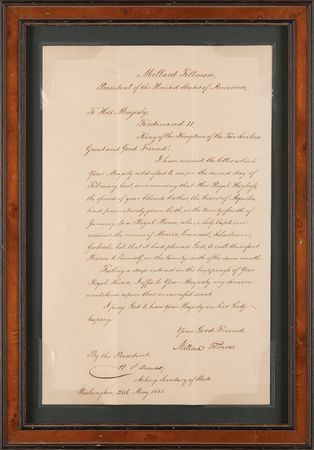 Millard Fillmore,
President of the United States of America,
To His Majesty,
Ferdinand II.
King of the Kingdom of the Two Sicilies.
Great and Good Friend:
I have received the letter which
Your Majesty addressed to me, on the second day of
February last, announcing that Her Royal Highness
the spouse of your beloved brother the Count of Aquila
had prematurely given birth on the twenty fourth of
January to a Royal Prince, who in holy baptism
received the names of Maria, Emanuel, Sebastian,
Gabriel, but that it had pleased God, to call the infant
Prince to himself, on the twenty sixth of the same month.
Feeling a deep interest in the happiness of Your
Royal House, I offer to Your Majesty my sincere
condolence upon this mournful event.
I pray God to have Your Majesty in his holy
keeping.
Your Good Friend,
Millard Fillmore
By the President,
Acting Secretary of State.
Washington, May, 1851